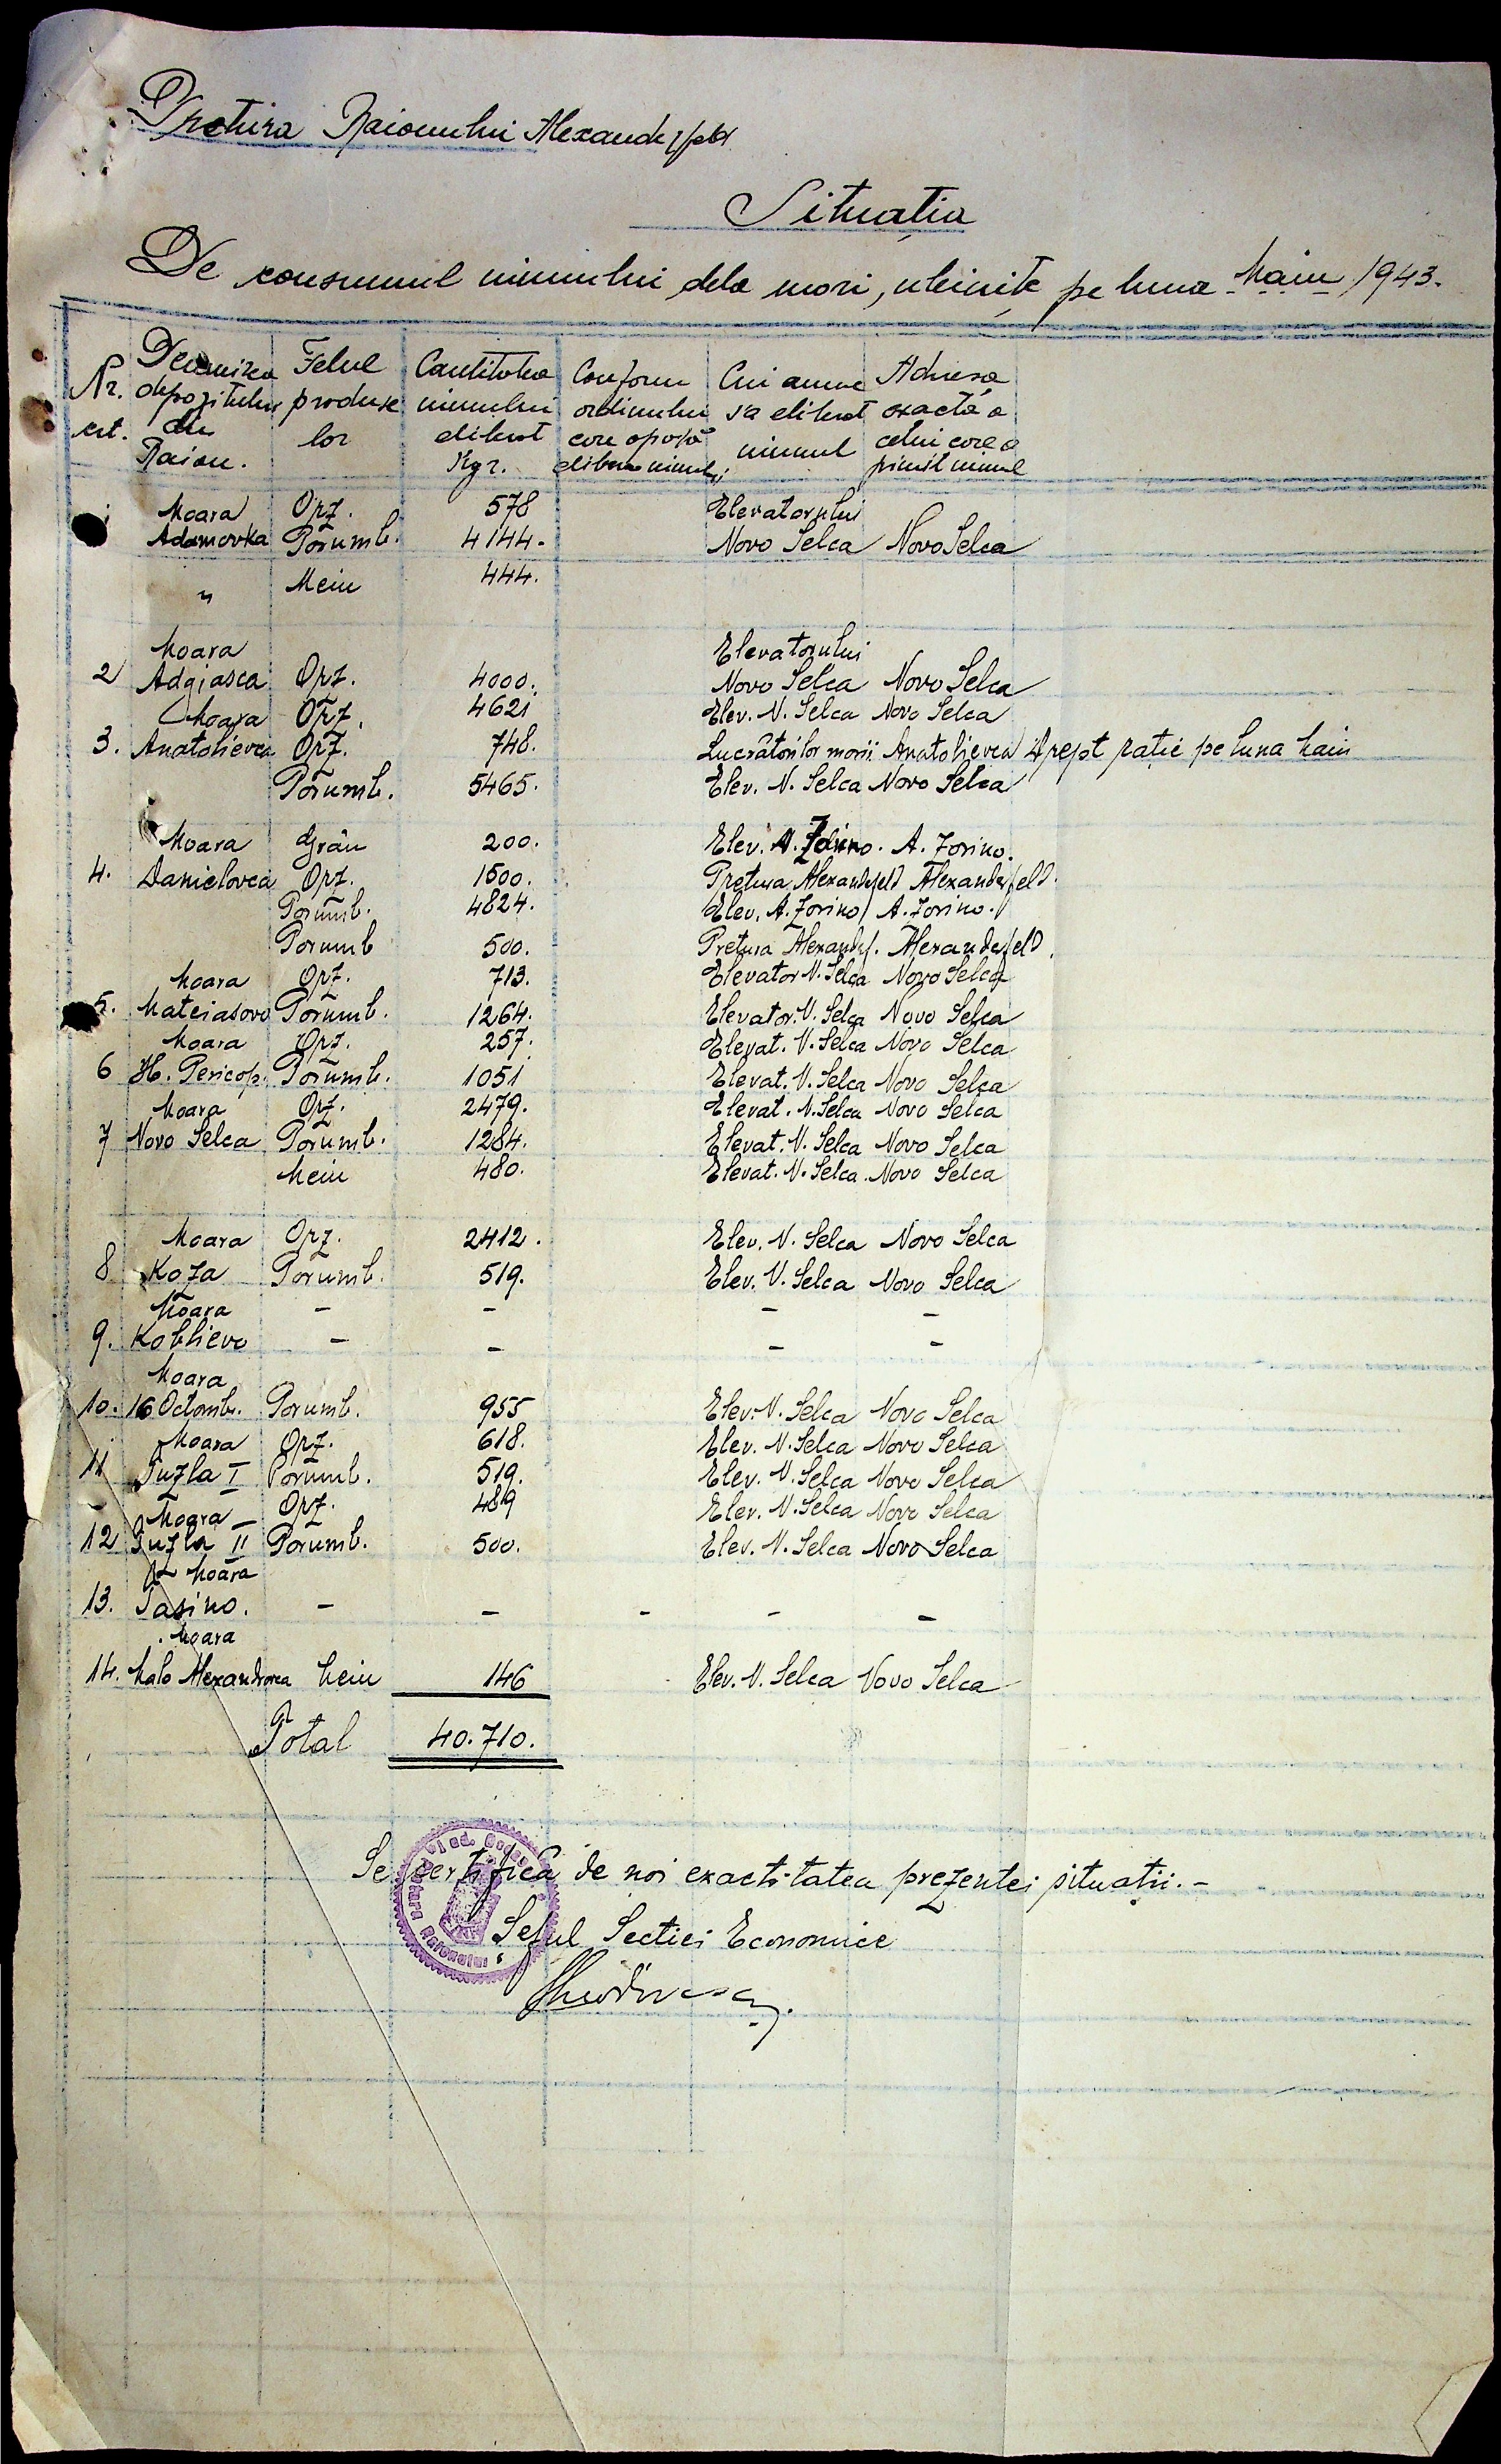 Pretura Raionului Alexanderfeld
Situația
De consumul uiumului dela mori, uleinițe pe luna Maiu 1943.
Nr. crt. Denumirea depozitului din Raion. Felul produse lor Cantitatea uiumului eliberat Kgr. Conform ordinului care aprobă eliber. uiumului Cui anume s'a eliberat uiumul Adresa exactă a celui care a primit uiumul
Moara Orz. 578 Elevatorului
Adamovka Porumb. 4144. Novo Selca Novo Selca
" Meiu 444.
Moara Elevatorului
2 Adgiasca Orz. 4000. Novo Selca Novo Selca
Moara Orz. 4621 Elev. N. Selca Novo Selca
3. Anatolievca Orz. 748. Lucrătorilor morii Anatolievca drept rație pe luna Maiu
Porumb. 5465. Elev. N. Selca Novo Selca
Moara Grâu 200. Elev. A. Zorino. A. Zorino.
4. Danielovca Orz. 1500. Pretura Alexandefeld Alexanderfeld.
Porumb. 4824. Elev. A. Zorino A. Zorino.
Porumb 500. Pretura Alexandf. Alexandefeld.
Moara Orz. 713. Elevator N. Selca Novo Selca
5. Mateiasovo Porumb. 1264. Elevator. N. Selca Novo Selca
Moara Orz. 257. Elevat. N. Selca Novo Selca
6 H. Pericop. Porumb. 1051 Elevat. N. Selca Novo Selca
Moara Orz. 2479. Elevat. N. Selca Novo Selca
7 Novo Selca Porumb. 1284. Elevat. N. Selca Novo Selca
Meiu 480. Elevat. N. Selca Novo Selca
Moara Orz. 2412. Elev. N. Selca Novo Selca
8 Koza Porumb. 519. Elev. N. Selca Novo Selca
Moara - - - -
9. Koblievo - - - -
Moara
10. 16 Octomb. Porumb. 955 Elev. N. Selca Novo Selca
Moara Orz. 618. Elev. N. Selca Novo Selca
11 Tuzla I Porumb. 519. Elev. N. Selca Novo Selca
Moara Orz. 489 Elev. N. Selca Novo Selca
12 Tuzla II Porumb. 500. Elev. N. Selca Novo Selca
Moara
13. Tasino. - - - - -
Moara
14. Malo Alexandrovca Meiu 146 Elev. N. Selca Novo Selca
Total 40.710.
Se certifică de noi exactitatea prezentei situații. -
Șeful Secției Economice
Pretura Raionului